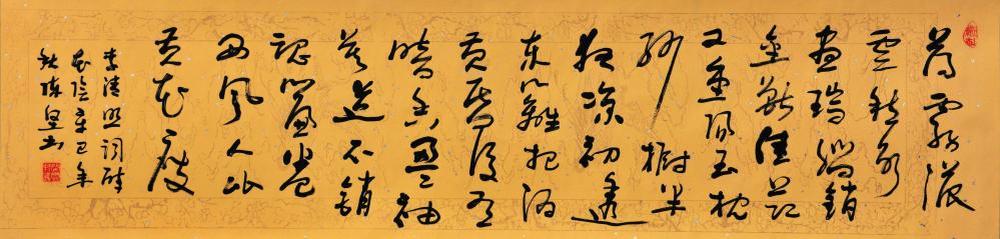 薄霧濃
雲愁永
晝瑞腦銷
金獸佳節
又重陽玉枕
紗櫥半
夜涼初透
東籬把酒
黃昏後有
暗香盈袖
莫道不銷
魂簾卷
西風人比
黃花瘦
李清照詞醉
花陰辛巳年
秋書